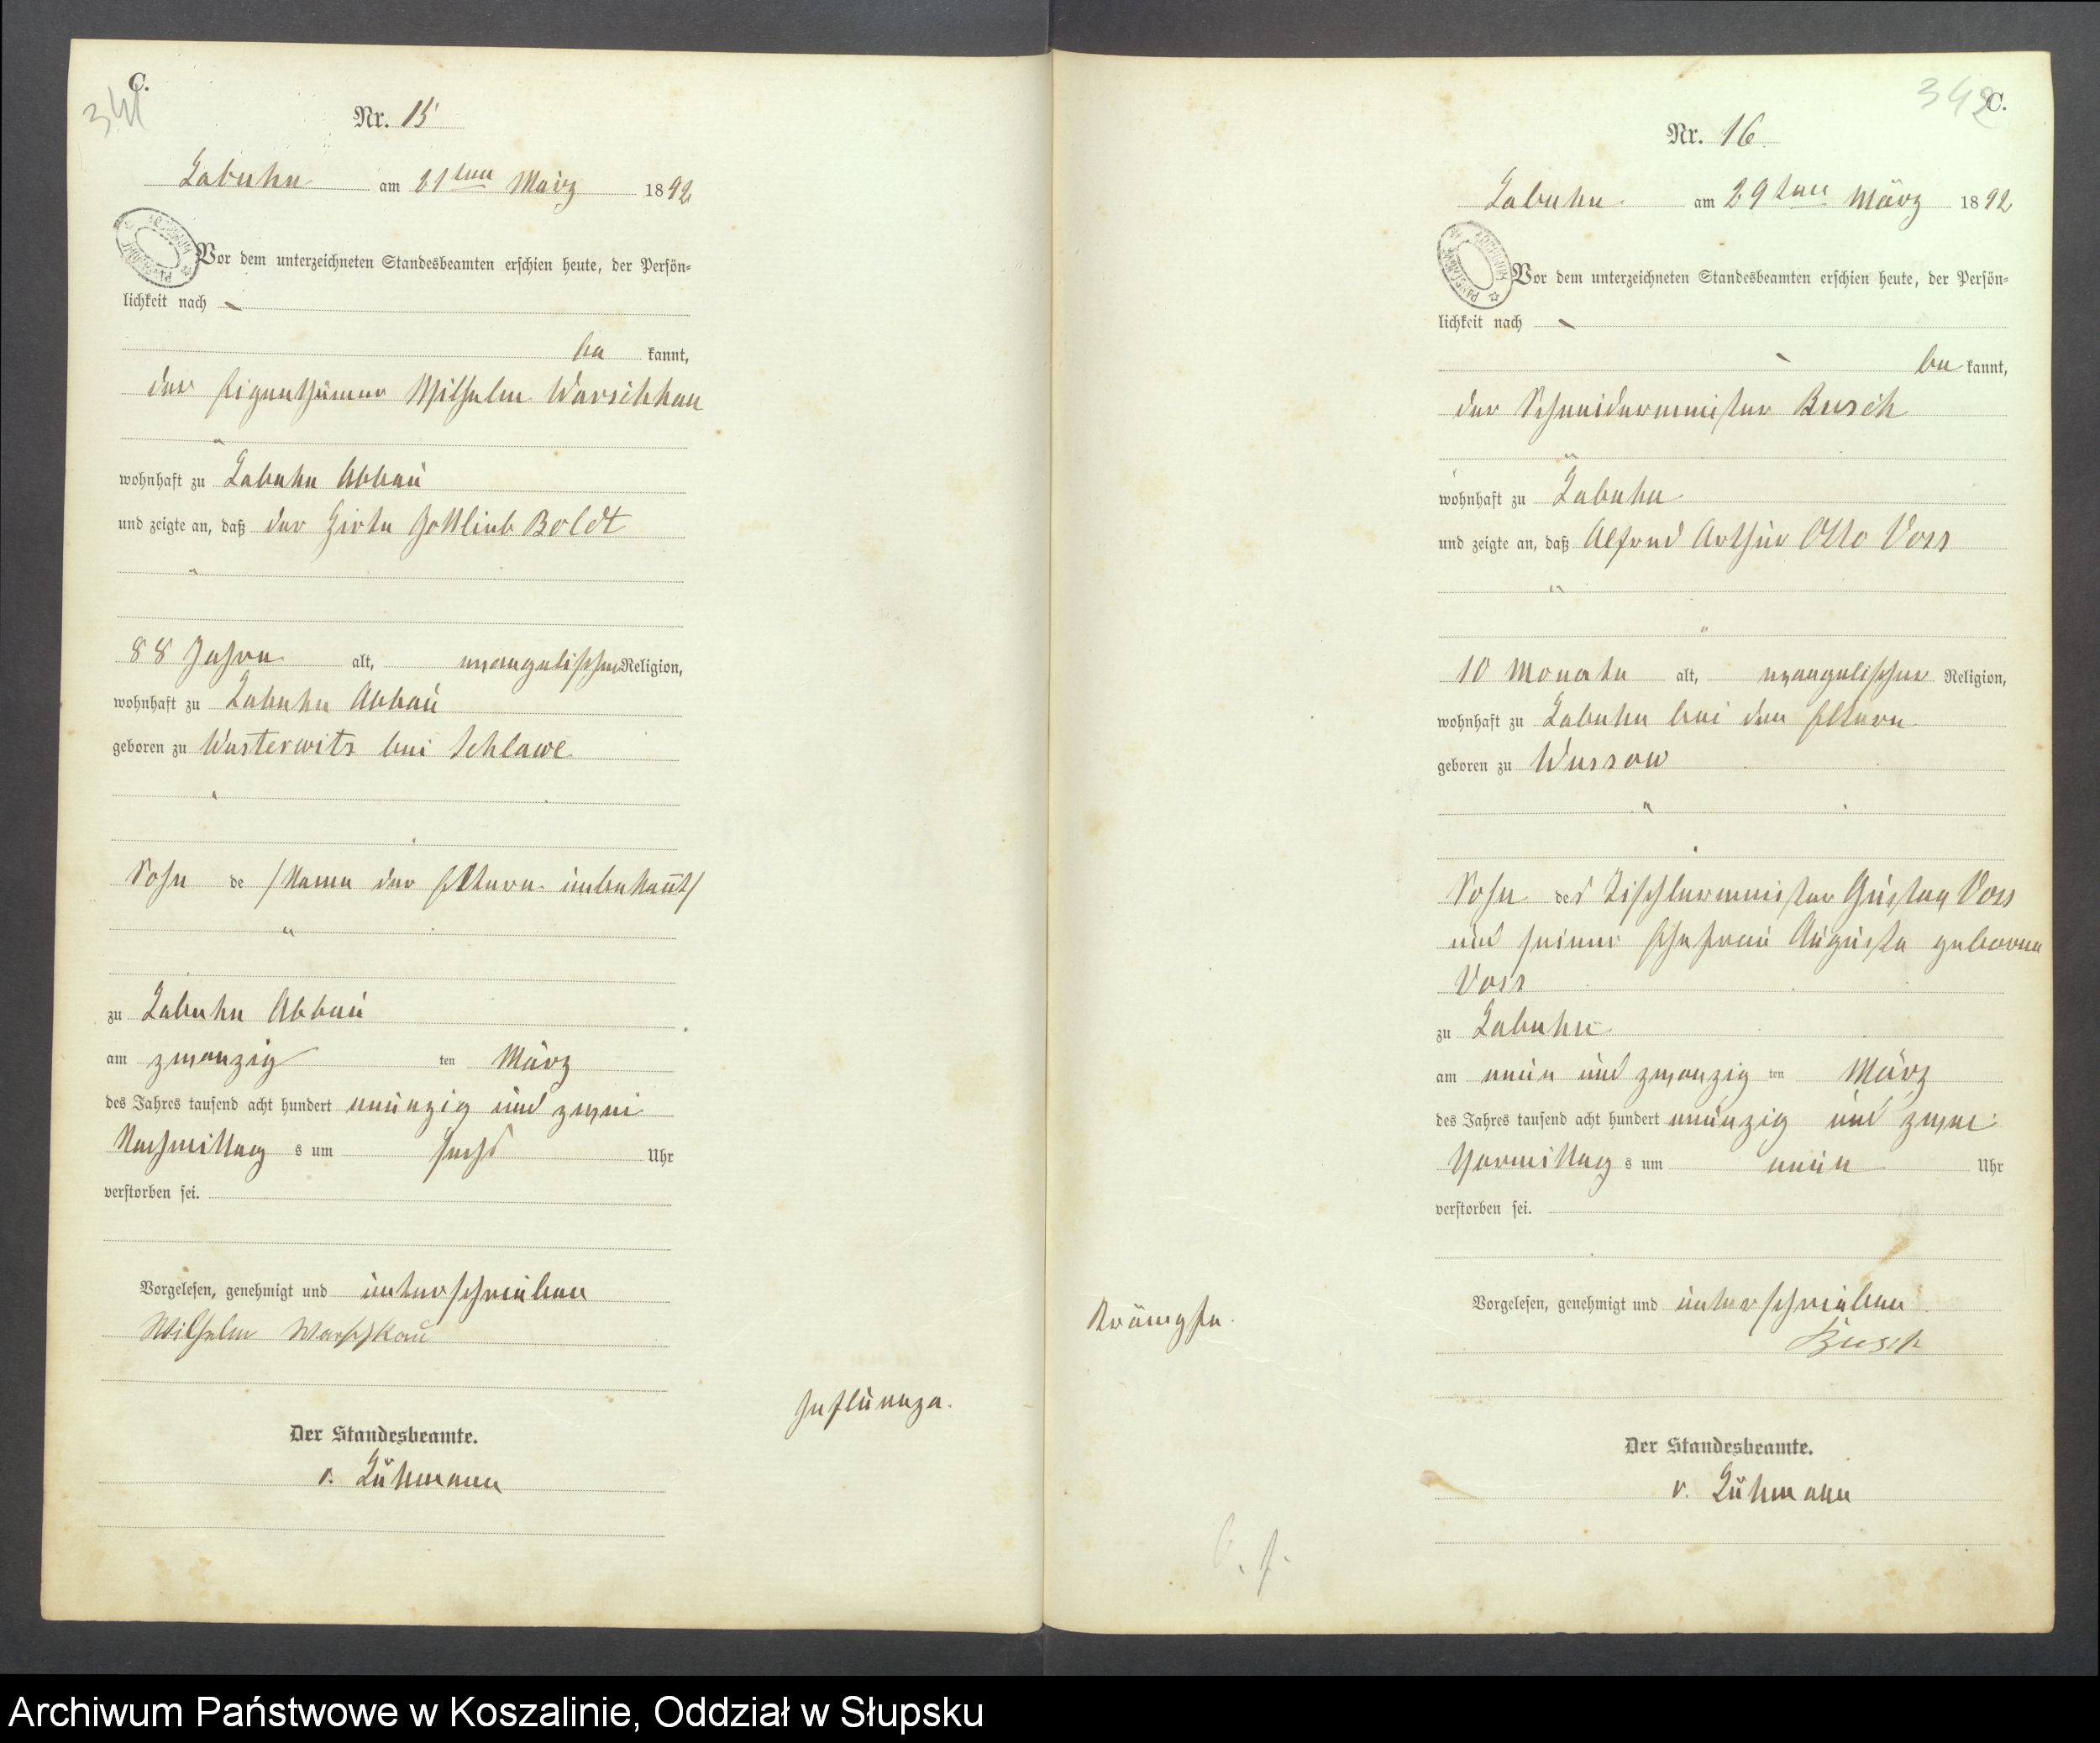 C.
341
Nr. 15
Labuhn am 21ten März 1892
Vor dem unterzeichneten Standesbeamten erschien heute, der Persön-
lichkeit nach
be kannt,
der Eigenthümer Wilhelm Warschkau
wohnhaft zu Labuhn Abbau
und zeigte an, daß der Hirte Gottlieb Boldt
88 Jahre alt, evangelischer Religion,
wohnhaft zu Labuhn Abbau
geboren zu Wusterwitz bei Schlawe
Sohn de /Name der Eltern unbekannt/
zu Labuhn Abbau
am zwanzig ten März
des Jahres tausend acht hundert neunzig und zwei
Nachmittag s um sechs Uhr
verstorben sei.
Vorgelesen, genehmigt und unterschrieben
Wilhelm Warschkau
Der Standesbeamte.
v. Lühmann
Influenza.
342
C.
Nr. 16
Labuhn am 29ten März 1892
Vor dem unterzeichneten Standesbeamten erschien heute, der Persön-
lichkeit nach
be kannt,
der Schneidermeister Busch
wohnhaft zu Labuhn
und zeigte an, daß Alfred Arthur Otto Voss
10 Monate alt, evangelischer Religion,
wohnhaft zu Labuhn bei den Eltern
geboren zu Wussow
Sohn des Tischlermeister Gustav Voss
und seiner Ehefrau Auguste geborene
Voss
zu Labuhn
am neun und zwanzig ten März
des Jahres tausend acht hundert neunzig und zwei
Vormittag s um neun Uhr
verstorben sei.
Vorgelesen, genehmigt und unterschrieben
Busch
Der Standesbeamte.
v. Lühmann
Krämpfe.
Archiwum Państwowe w Koszalinie, Oddział w Słupsku